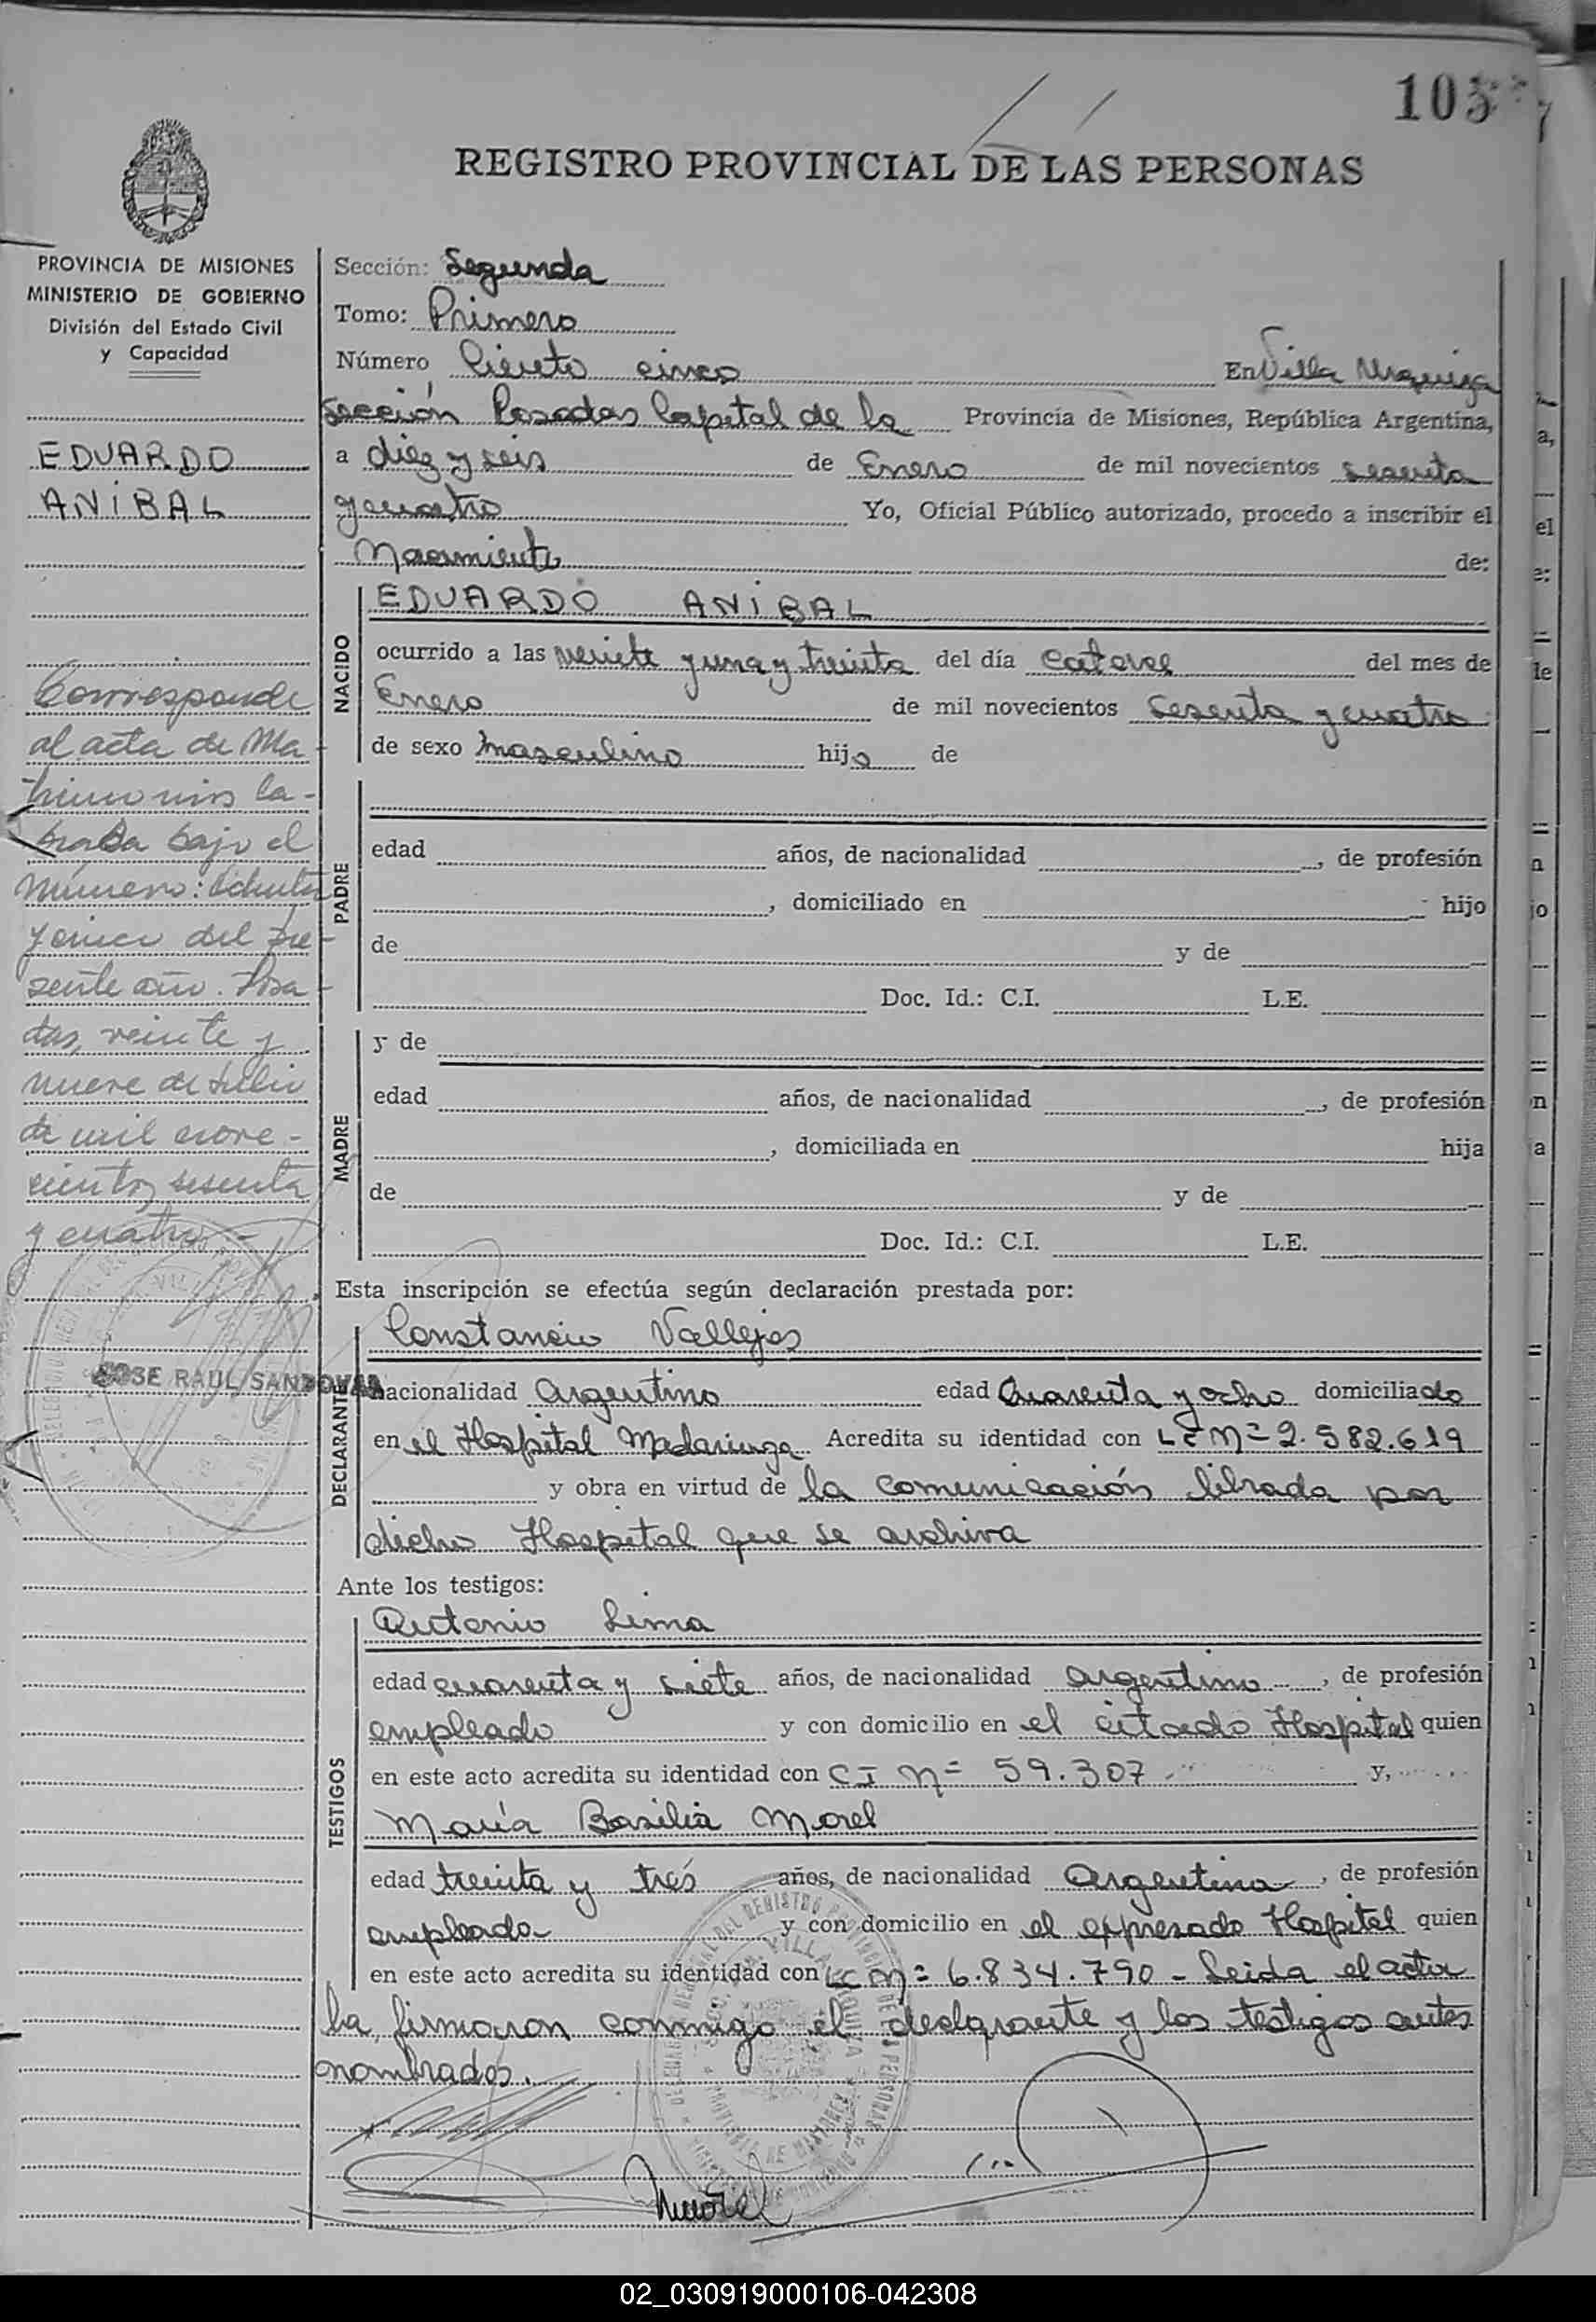 105
REGISTRO PROVINCIAL DE LAS PERSONAS
PROVINCIA DE MISIONES
MINISTERIO DE GOBIERNO
División del Estado Civil
y Capacidad
EDUARDO
ANIBAL
Corresponde
al acta de Ma-
trimonios la-
brada bajo el
Número: Ochenta
y cinco del pre-
sente año. Posa-
das, veinte y
nueve de Julio
de mil nove-
cientos sesenta
y cuatro.-
JOSE RAUL SANDOVAL
Sección: Segunda
Tomo: Primero
Número Ciento cinco En Villa Urquiza
Sección Posadas Capital de la Provincia de Misiones, República Argentina,
a diez y seis de Enero de mil novecientos sesenta
y cuatro Yo, Oficial Público autorizado, procedo a inscribir el
Nacimiento de:
NACIDO
EDUARDO ANIBAL
ocurrido a las veinte y una y treinta del día catorce del mes de
Enero de mil novecientos sesenta y cuatro
de sexo masculino hijo de
PADRE
edad años, de nacionalidad , de profesión
, domiciliado en hijo
de y de
Doc. Id.: C.I. L.E.
MADRE
y de
edad años, de nacionalidad , de profesión
, domiciliada en hija
de y de
Doc. Id.: C.I. L.E.
Esta inscripción se efectúa según declaración prestada por:
DECLARANTE
Constancio Vallejos
nacionalidad argentino edad cuarenta y ocho domiciliado
en el Hospital Madariaga Acredita su identidad con LE Nº 2.582.619
y obra en virtud de la comunicación librada por
dicho Hospital que se archiva
Ante los testigos:
TESTIGOS
Antonio Lima
edad cuarenta y siete años, de nacionalidad argentino , de profesión
empleado y con domicilio en el citado Hospital quien
en este acto acredita su identidad con CI Nº 59.307 y,
María Basilia Morel
edad treinta y tres años, de nacionalidad Argentina , de profesión
empleada y con domicilio en el expresado Hospital quien
en este acto acredita su identidad con LC Nº 6.834.790 - Leida el acta
la firmaron conmigo el declarante y los testigos antes
nombrados.
Morel
02_030919000106-042308